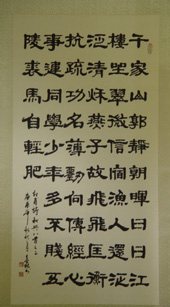 千家山郭靜朝暉日日江
樓坐翠微信宿漁人還泛
泛清秋燕子故飛飛匡衡
抗疏功名薄劉向傳經心
事違同學少年多不賤五
陵裘馬自輕肥